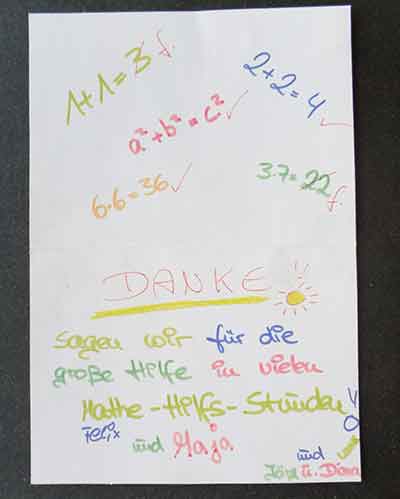 1+1=3 f.
2+2=4 ✓
a²+b²=c² ✓
6·6=36 ✓
3·7=22 f.
DANKE
sagen wir für die
große Hilfe in vielen
Mathe-Hilfs-Stunden!
Felix
und Maja
und
Jörg u. Diana